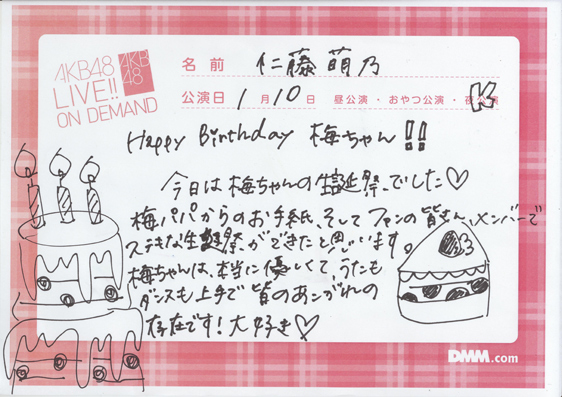 AKB48
LIVE!!
ON DEMAND
AKB
48
名前 仁藤萌乃
公演日 1月10日 昼公演・おやつ公演・夜公演
K
Happy Birthday 梅ちゃん!!
今日は梅ちゃんの生誕祭、でした♡
梅パパからのお手紙、そしてファンの皆さん、メンバーで
ステキな生誕祭ができたと思います。
梅ちゃんは、本当に優しくて、うたも
ダンスも上手で皆のあこがれの
存在です!大好き♡
DMM.com